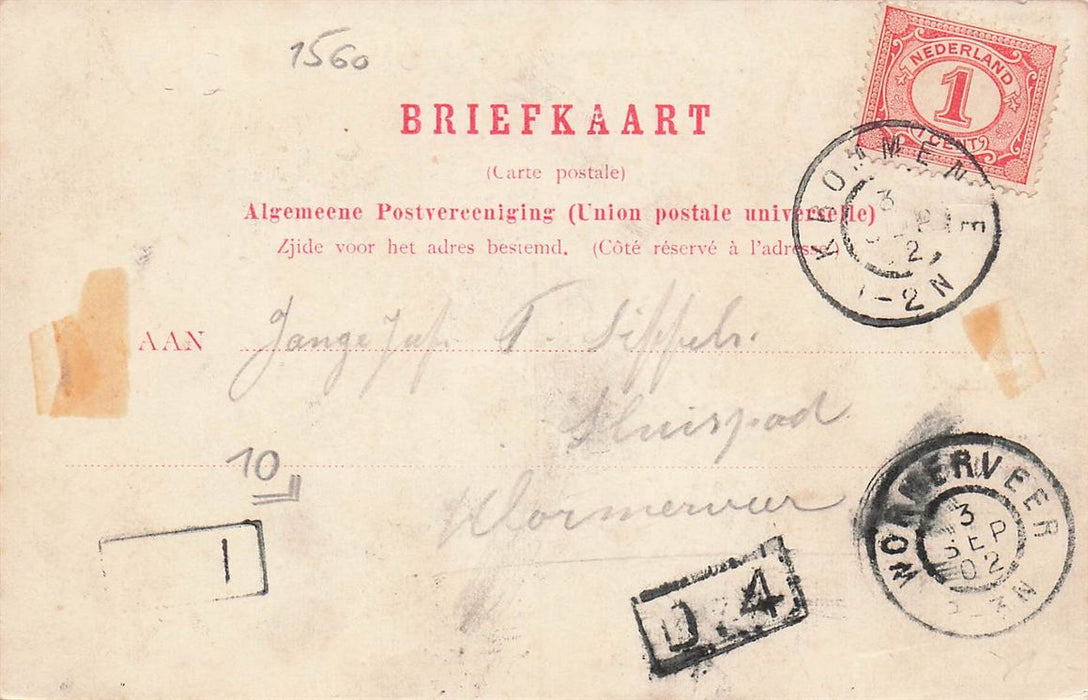 1560
NEDERLAND
1
1 CENT
BRIEFKAART
(Carte postale)
Algemeene Postvereeniging (Union postale universelle)
Zijde voor het adres bestemd. (Côté réservé à l'adresse)
KROMMENIE
3
SEP
02
1-2N
AAN
T.
Sluispad
Wormerveer
10
1
D.4
WORMERVEER
3
SEP
02
2-3N